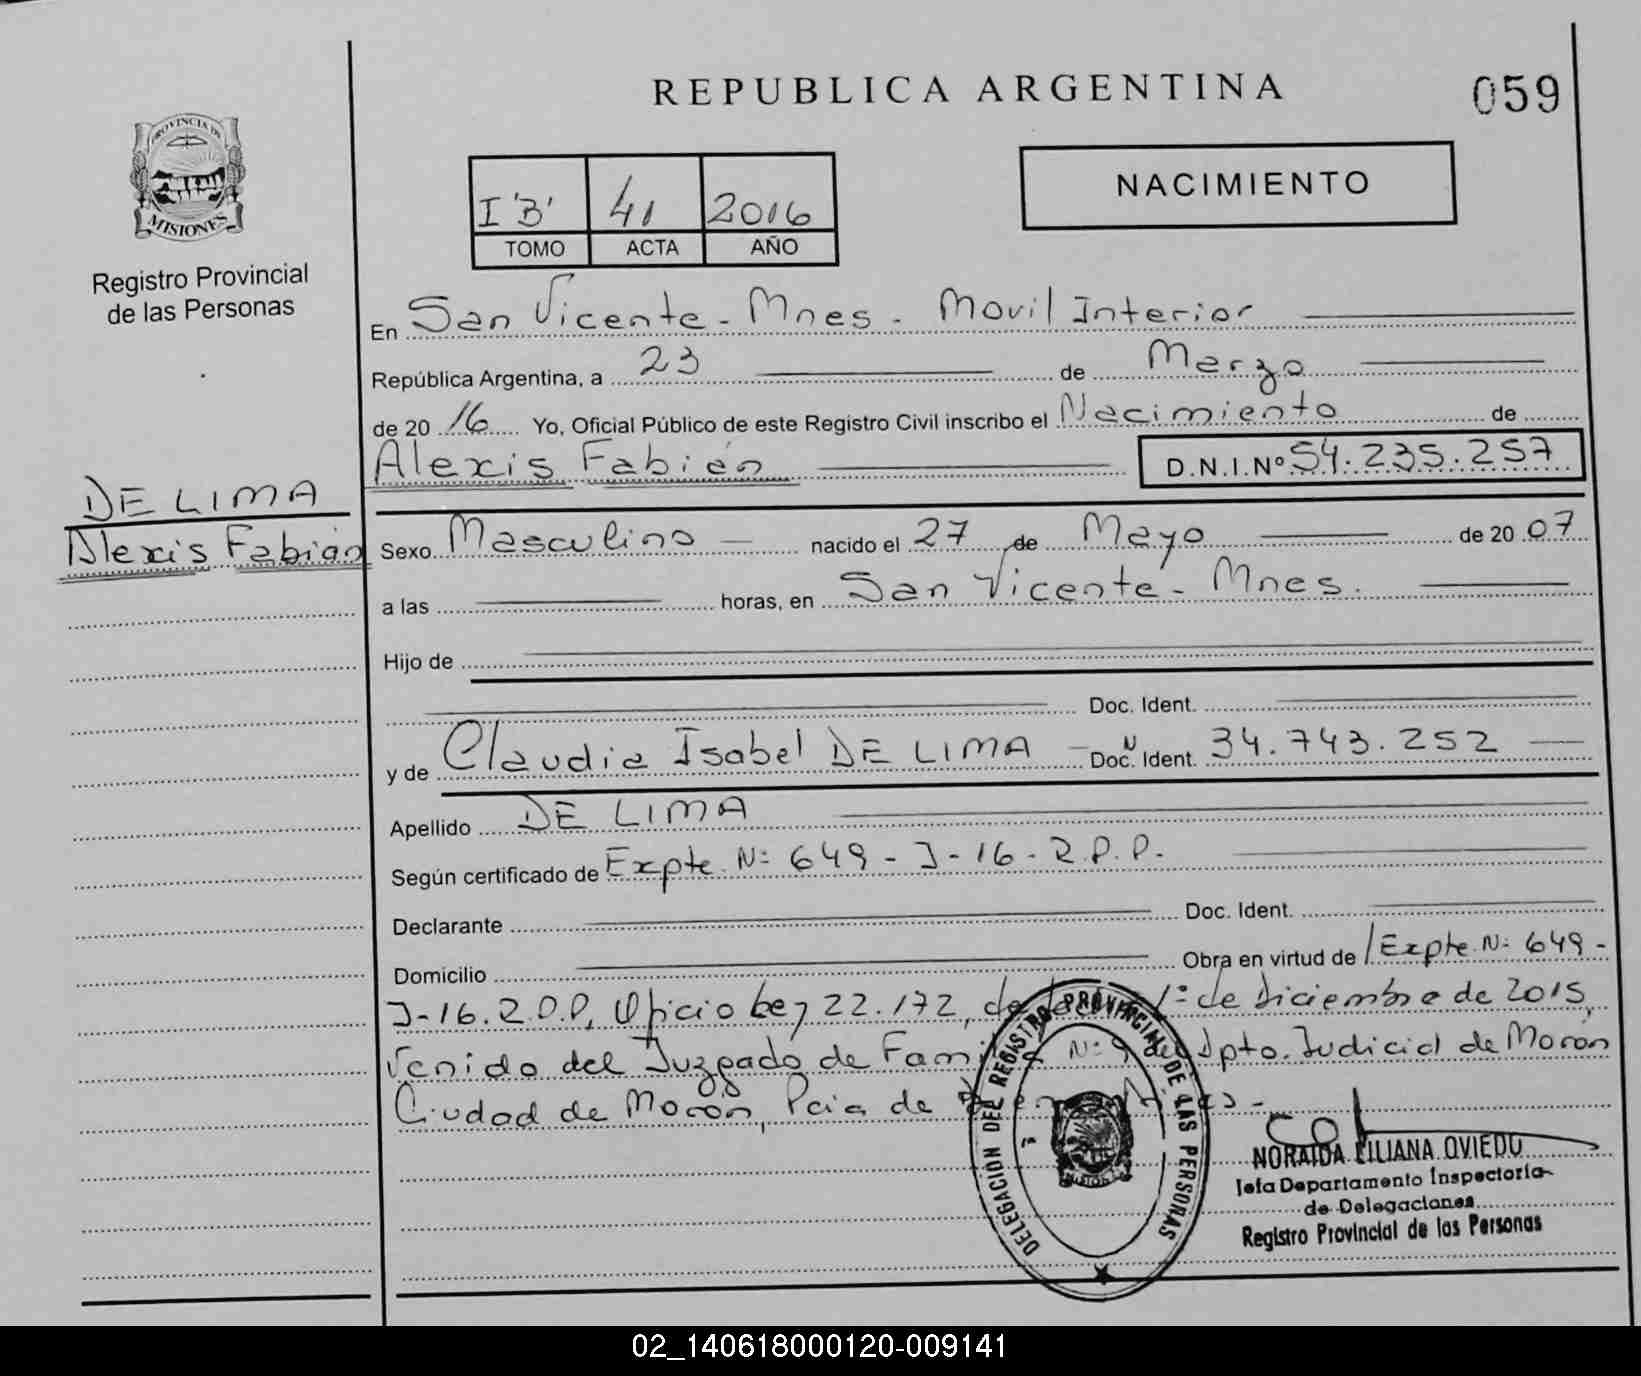 REPUBLICA ARGENTINA
059
PROVINCIA DE
MISIONES
Registro Provincial
de las Personas
NACIMIENTO
I 'B' 41 2016
TOMO ACTA AÑO
En San Vicente - Mnes - Movil Interior
República Argentina, a 23 de Marzo
de 2016 Yo, Oficial Público de este Registro Civil inscribo el Nacimiento de
Alexis Fabián D.N.I.Nº 54.235.257
DE LIMA
Alexis Fabian
Sexo Masculino nacido el 27 de Mayo de 2007
a las horas, en San Vicente - Mnes.
Hijo de
Doc. Ident.
y de Claudia Isabel DE LIMA Doc. N Ident. 34.743.252
Apellido DE LIMA
Según certificado de Expte. Nº 649 - J - 16 - R.P.P.
Declarante Doc. Ident.
Domicilio Obra en virtud de Expte. Nº 649 -
J-16. R.P.P, Oficio Ley 22.172, de 1º de diciembre de 2015,
venido del Juzgado de Familia Nº del Dpto. Judicial de Morón
Ciudad de Morón, Pcia de Buenos Aires -
DELEGACION DEL REGISTRO PROVINCIAL DE LAS PERSONAS
NORAIDA LILIANA OVIEDO
Jefa Departamento Inspectoría
de Delegaciones
Registro Provincial de las Personas
02_140618000120-009141